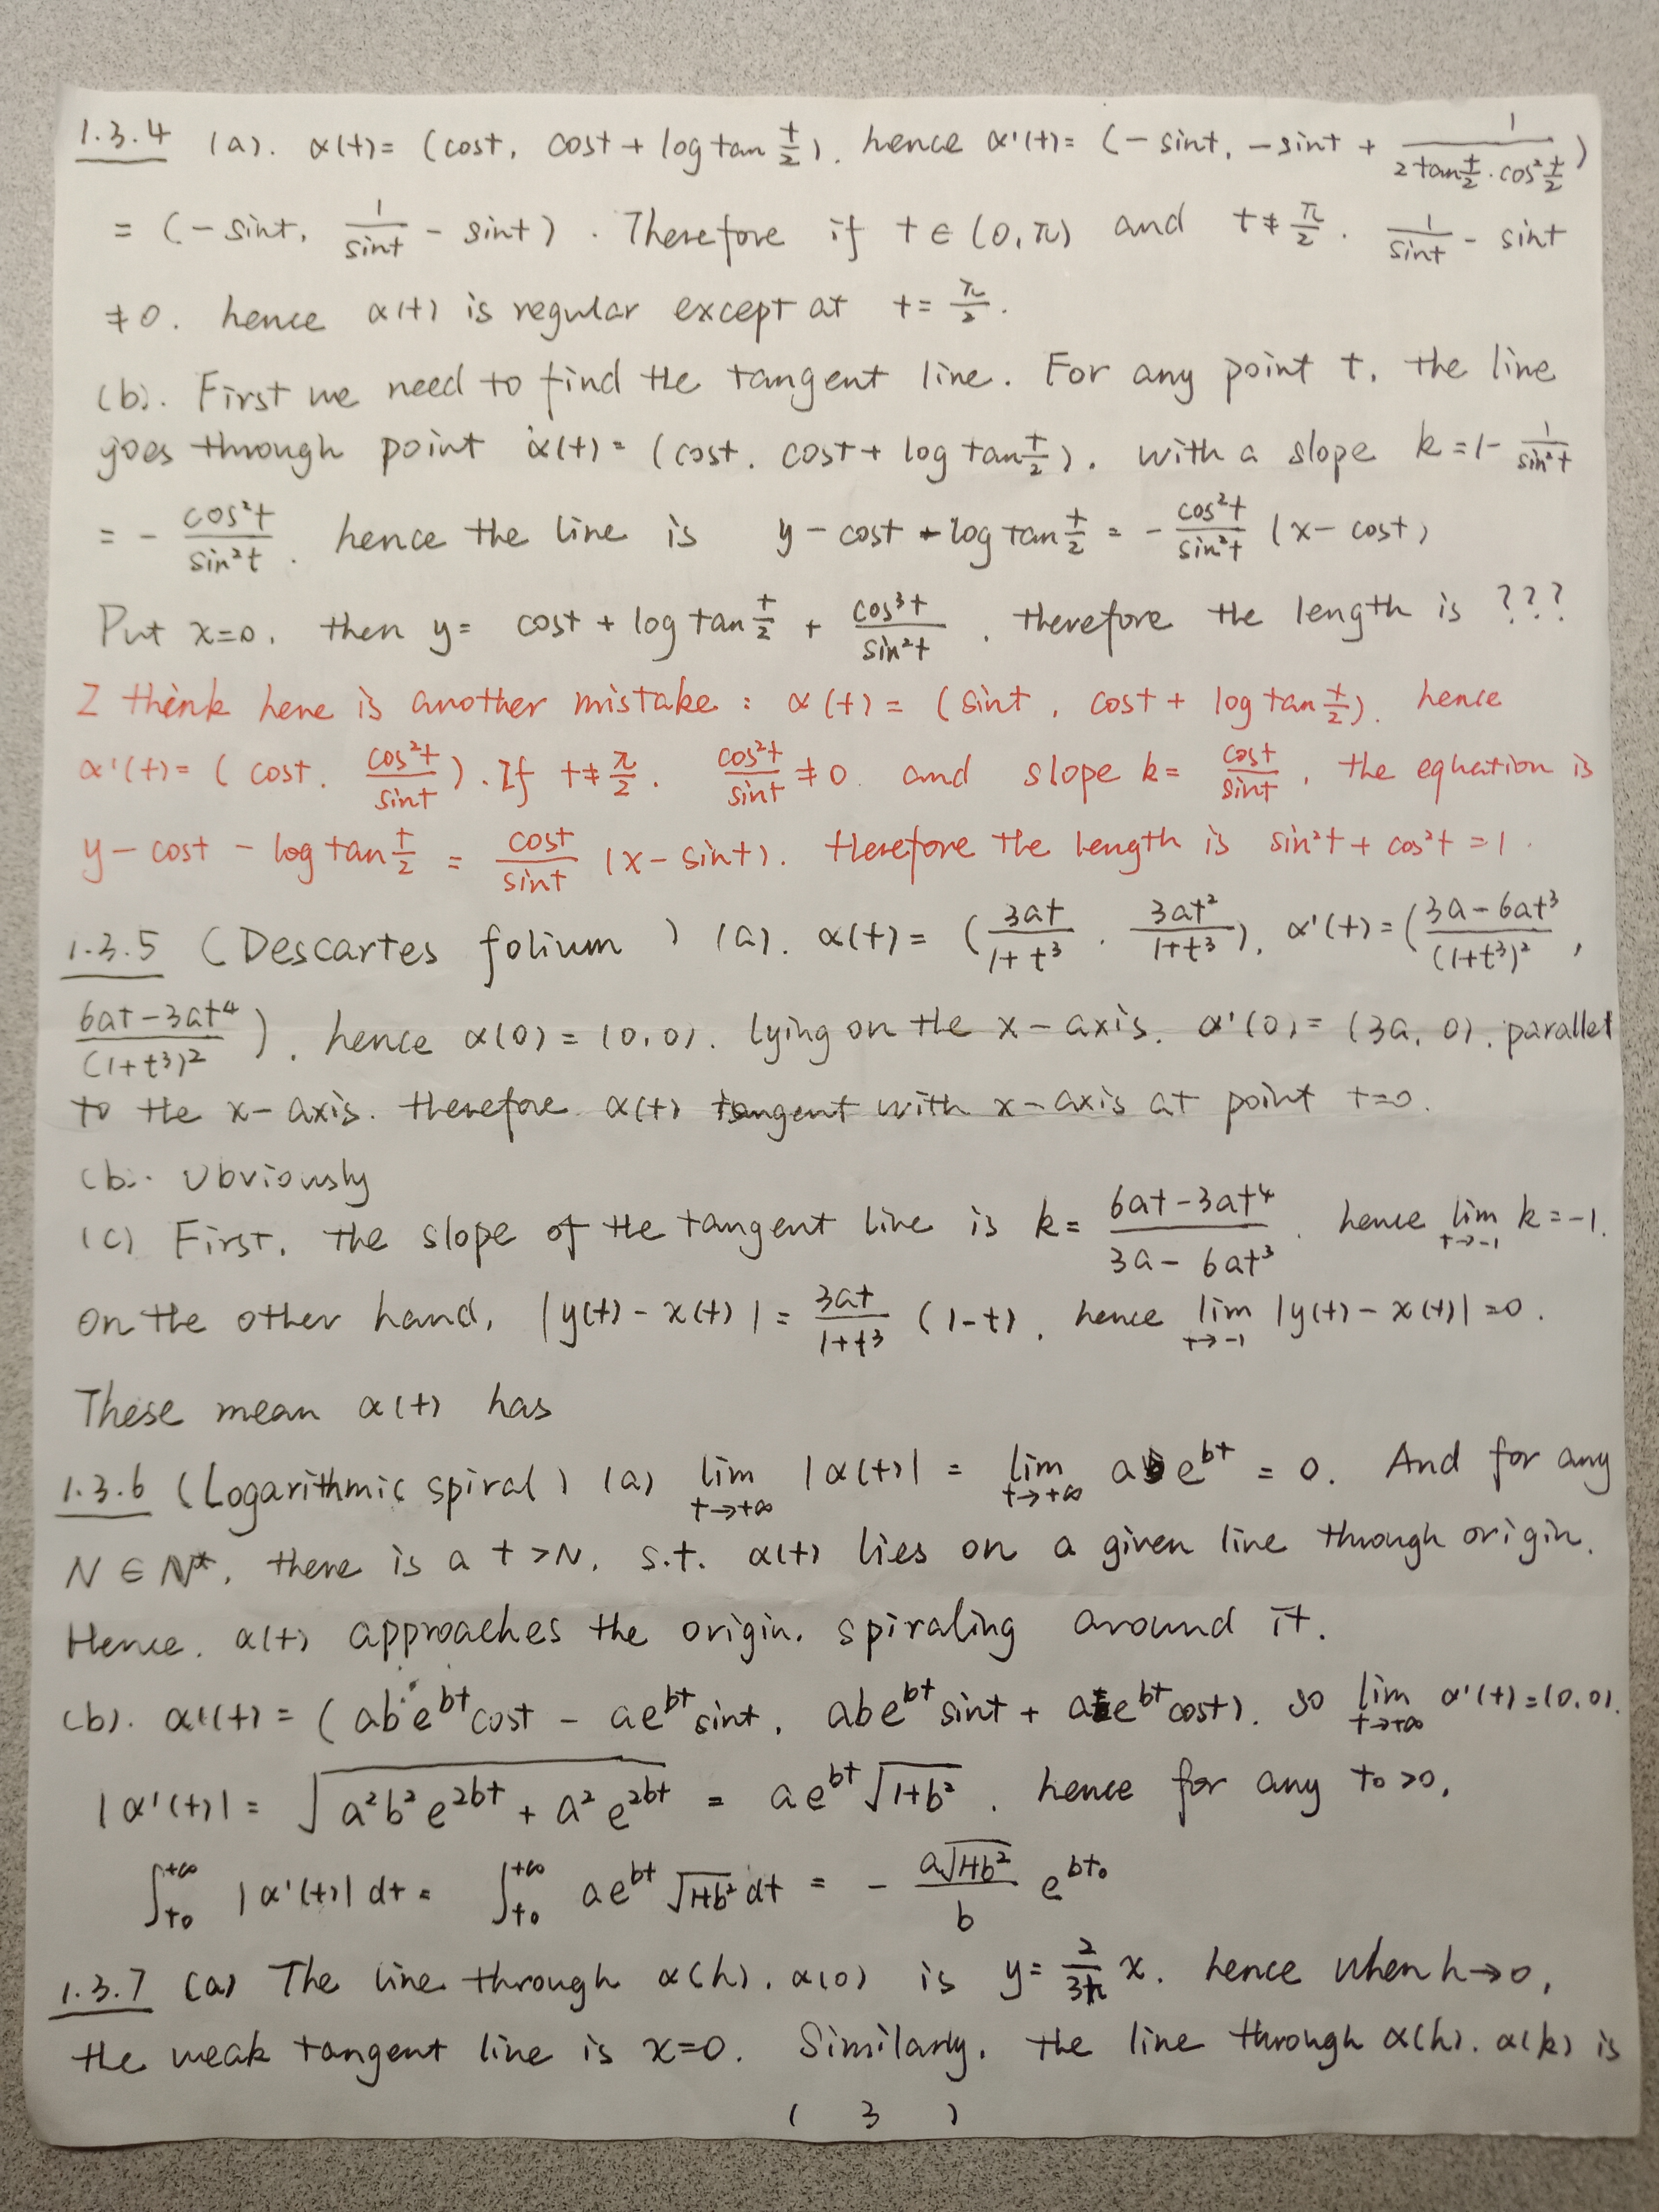 1.3.4 (a). α(t)= (cost, cost + log tan t/2). hence α'(t)= (-sint, -sint + 1/(2tan t/2 · cos² t/2))
= (-sint, 1/sint - sint). Therefore if t∈(0,π) and t≠π/2. 1/sint - sint
≠0. hence α(t) is regular except at t= π/2.
(b). First we need to find the tangent line. For any point t, the line
goes through point α(t)= (cost, cost + log tan t/2). with a slope k=1- 1/sin²t
= - cos²t/sin²t. hence the line is y - cost - log tan t/2 = - cos²t/sin²t (x - cost)
Put x=0, then y= cost + log tan t/2 + cos³t/sin²t. therefore the length is ???
I think here is another mistake: α(t) = (sint, cost + log tan t/2). hence
α'(t)= (cost, cos²t/sint). If t≠π/2. cos²t/sint ≠0. and slope k= cost/sint, the equation is
y - cost - log tan t/2 = cost/sint (x-sint). therefore the length is sin²t + cos²t = 1.
1.3.5 (Descartes folium) (a). α(t)= (3at/(1+t³), 3at²/(1+t³)). α'(t)=((3a-6at³)/(1+t³)²,
(6at-3at⁴)/(1+t³)²). hence α(0) = (0,0). lying on the x-axis. α'(0)= (3a, 0). parallel
to the x-axis. therefore α(t) tangent with x-axis at point t=0.
(b). Obviously
(c) First, the slope of the tangent line is k= (6at-3at⁴)/(3a-6at³). hence lim t→-1 k=-1.
On the other hand, |y(t)-x(t)| = 3at/(1+t³) (1-t). hence lim t→-1 |y(t)-x(t)|=0.
These mean α(t) has
1.3.6 (Logarithmic spiral) (a) lim t→+∞ |α(t)| = lim t→+∞ ae^bt = 0. And for any
N∈N*, there is a t>N, s.t. α(t) lies on a given line through origin.
Hence. α(t) approaches the origin. spiraling around it.
(b). α'(t) = (abe^bt cost - ae^bt sint, abe^bt sint + ae^bt cost). so lim t→+∞ α'(t)=(0,0).
|α'(t)| = √(a²b²e^2bt + a²e^2bt) = ae^bt √(1+b²). hence for any t₀>0,
∫_t₀^+∞ |α'(t)|dt = ∫_t₀^+∞ ae^bt √(1+b²) dt = - a√(1+b²)/b e^bt₀
1.3.7 (a) The line through α(h), α(0) is y= 2/3h x. hence when h→0,
the weak tangent line is x=0. Similarly, the line through α(h), α(k) is
( 3 )